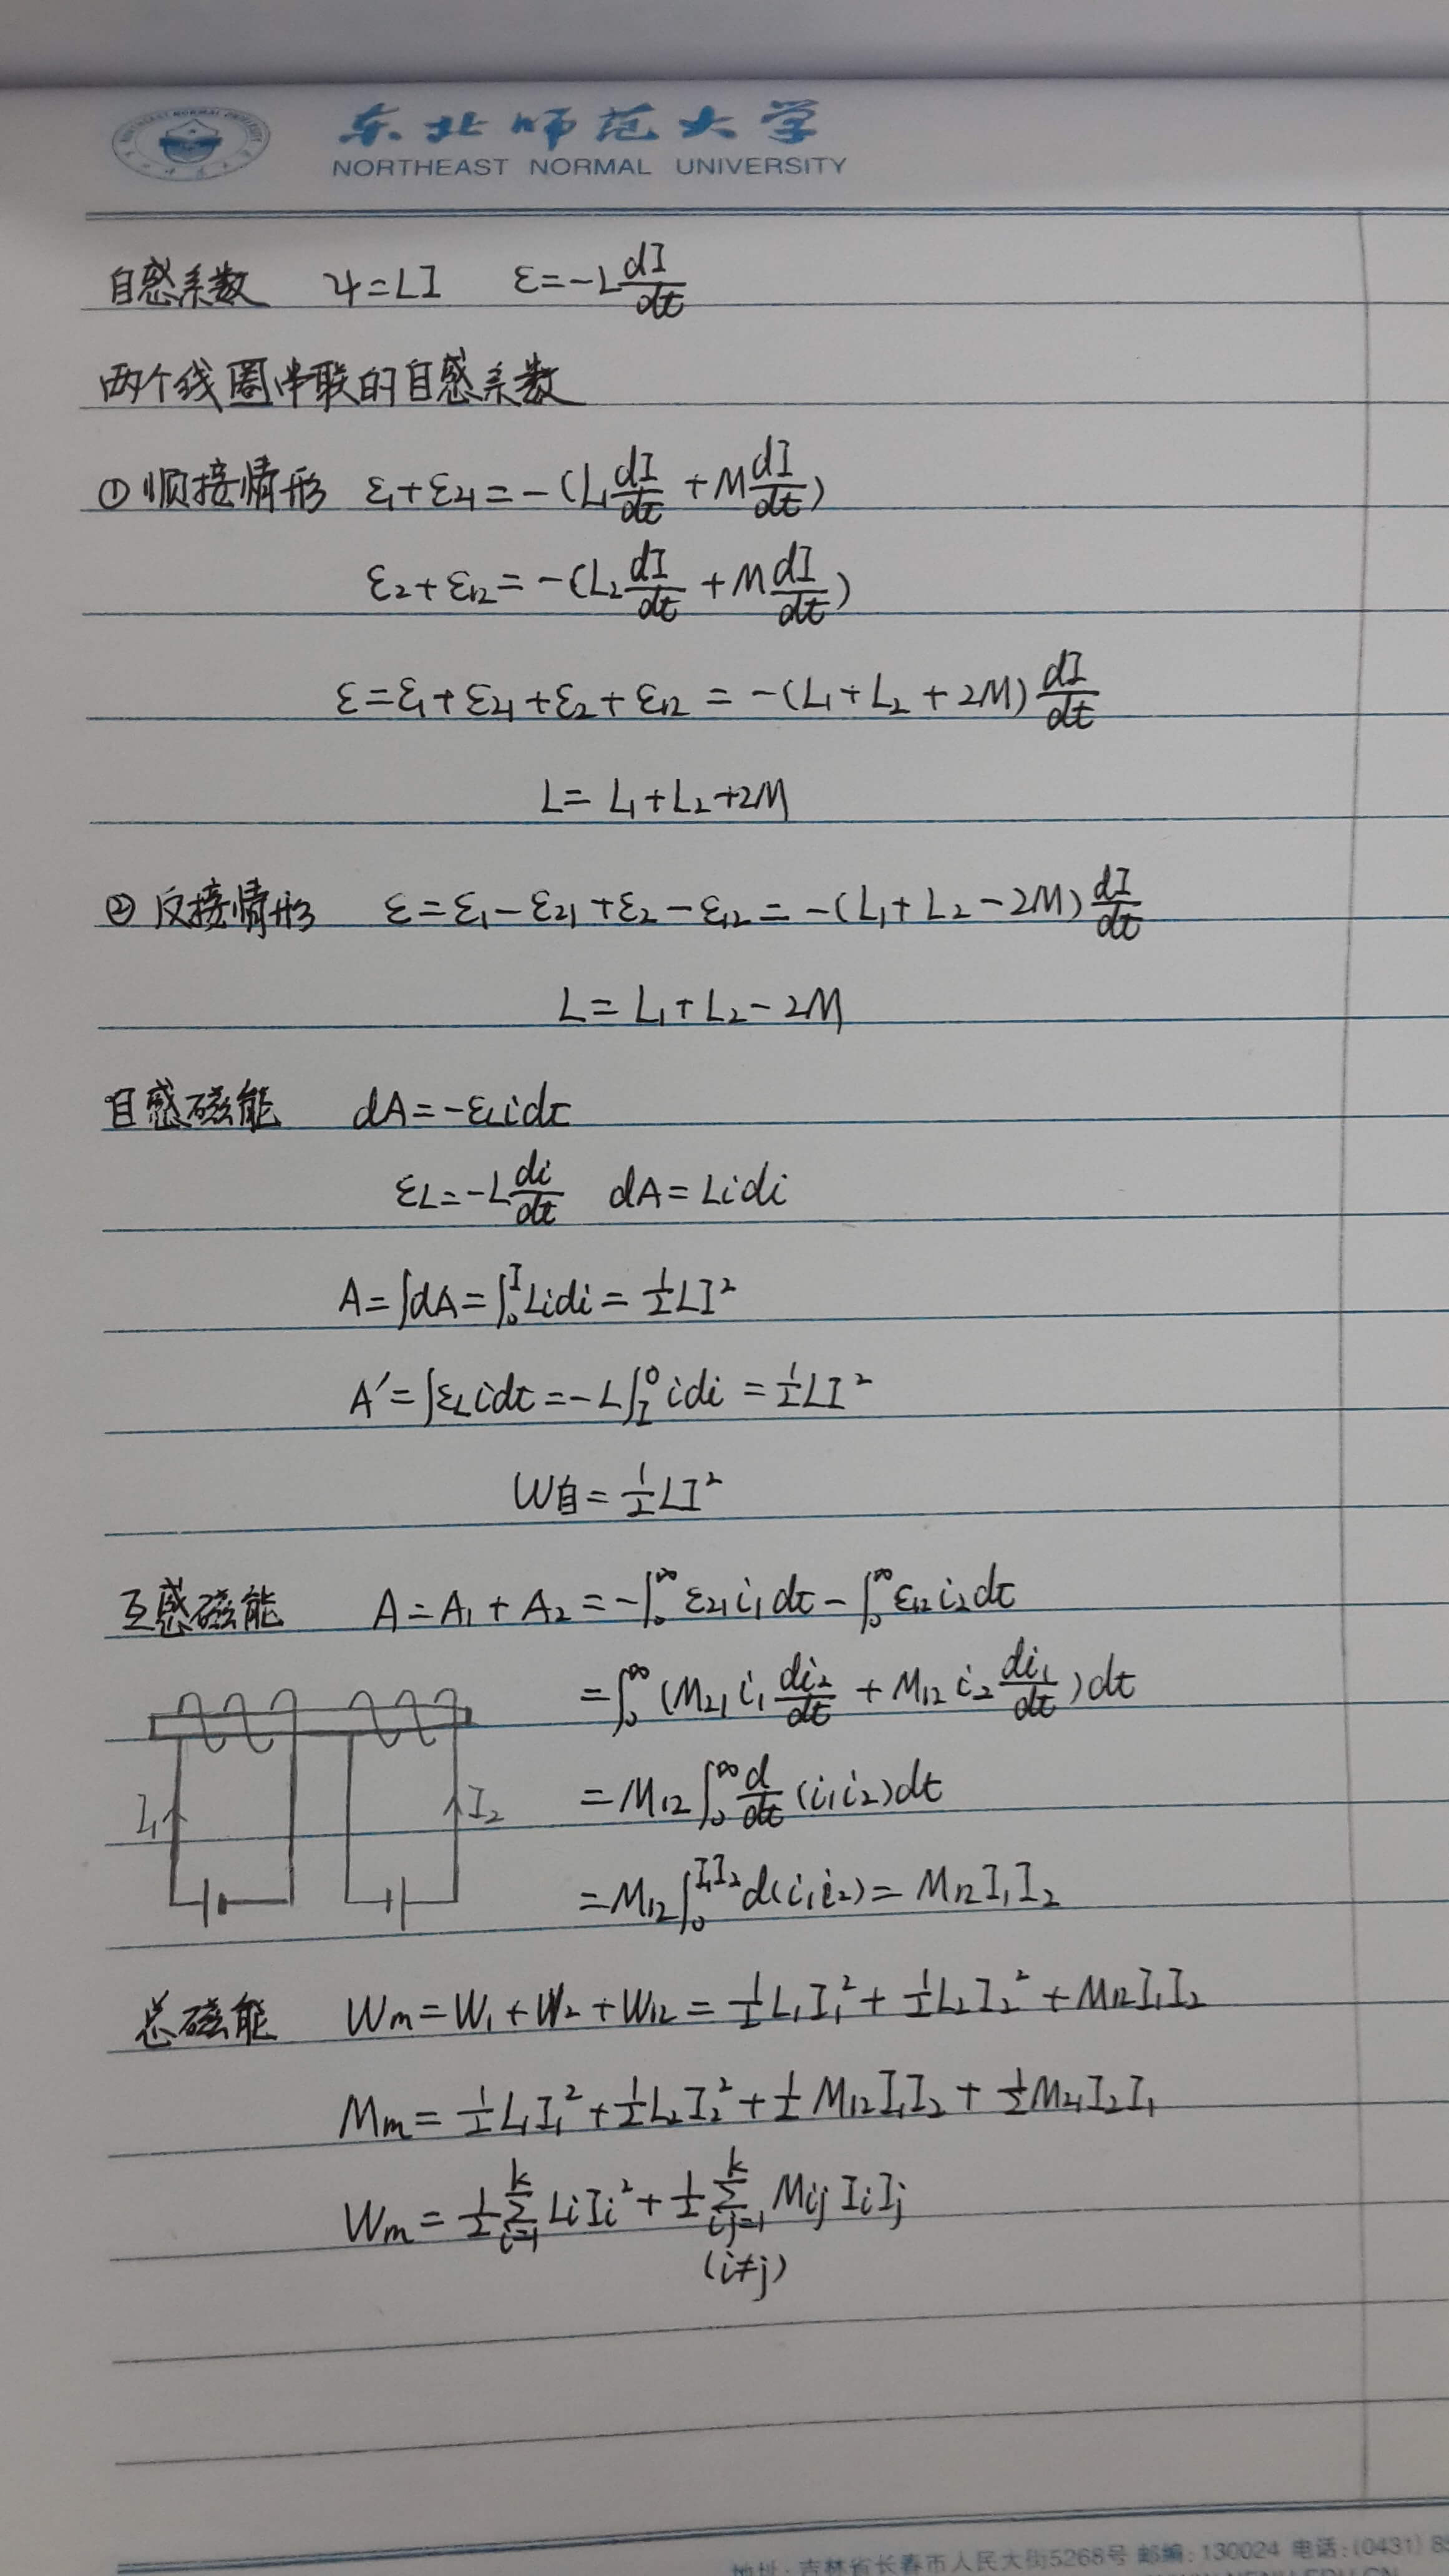 东北师范大学
NORTHEAST NORMAL UNIVERSITY
自感系数 Ψ=LI ε=-L dI/dt
两个线圈串联的自感系数
① 顺接情形 ε₁+ε₂₁=-(L₁ dI/dt + M dI/dt)
ε₂+ε₁₂=-(L₂ dI/dt + M dI/dt)
ε=ε₁+ε₂₁+ε₂+ε₁₂=-(L₁+L₂+2M) dI/dt
L=L₁+L₂+2M
② 反接情形 ε=ε₁-ε₂₁+ε₂-ε₁₂=-(L₁+L₂-2M) dI/dt
L=L₁+L₂-2M
自感磁能 dA=-ε_L i dt
ε_L=-L di/dt dA=Lidi
A=∫dA=∫₀^I Lidi=½LI²
A′=∫ε_L i dt=-L∫_I^0 idi=½LI²
W自=½LI²
互感磁能 A=A₁+A₂=-∫₀^∞ ε₂₁i₁dt-∫₀^∞ ε₁₂i₂dt
=∫₀^∞ (M₂₁ i₁ di₂/dt + M₁₂ i₂ di₁/dt)dt
=M₁₂∫₀^∞ d/dt (i₁i₂)dt
I₁ I₂
=M₁₂∫₀^{I₁I₂} d(i₁i₂)=M₁₂I₁I₂
总磁能 Wm=W₁+W₂+W₁₂=½L₁I₁²+½L₂I₂²+M₁₂I₁I₂
Mm=½L₁I₁²+½L₂I₂²+½M₁₂I₁I₂+½M₂₁I₂I₁
Wm=½∑_{i=1}^k LiIi²+½∑_{i,j=1}^k Mij IiIj
(i≠j)
地址:吉林省长春市人民大街5268号 邮编:130024 电话:(0431)